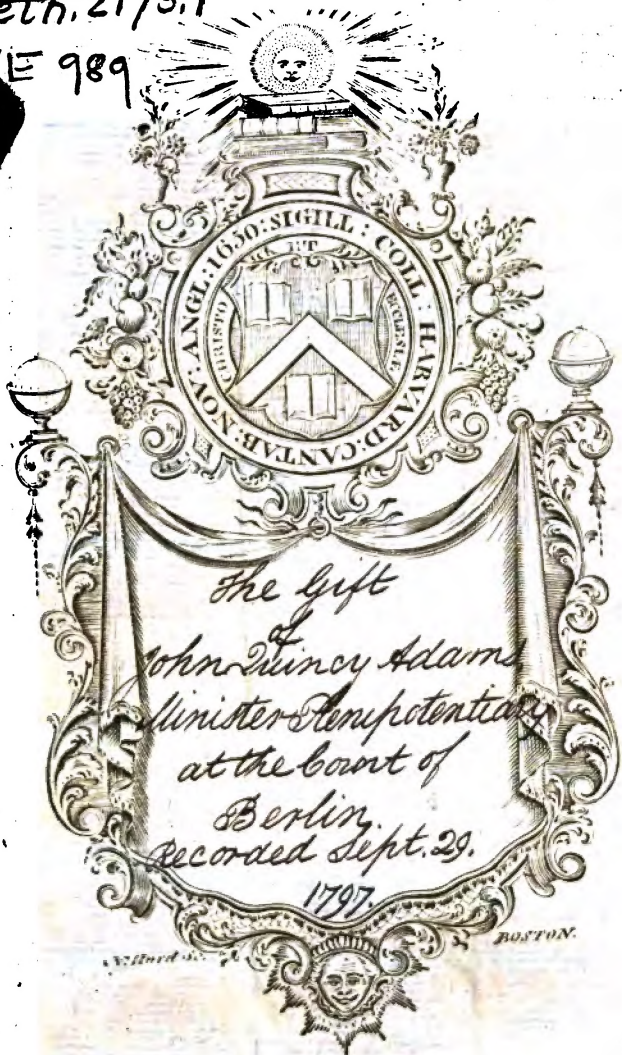 eth. 2173.1
E 989
SIGILL : COLL : HARVARD : CANTAB : NOV : ANGL : 1650 :
ET
CHRISTO
ECLESIÆ
The Gift
of
John Quincy Adams
Minister Plenipotentiary
at the Court of
Berlin.
Recorded Sept. 29.
1797.
N. Hurd Sc.
BOSTON.